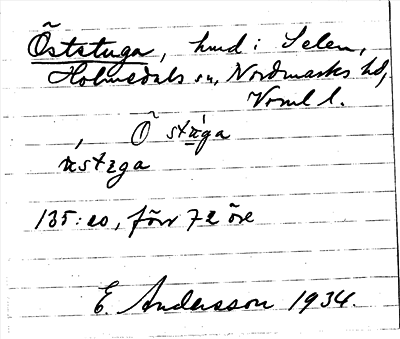 Öststuga, hmd i Selen,
Holmedals sn, Nordmarks hd,
Vrml l.
Ö
135:20, förr 72 öre
E. Andersson 1934.